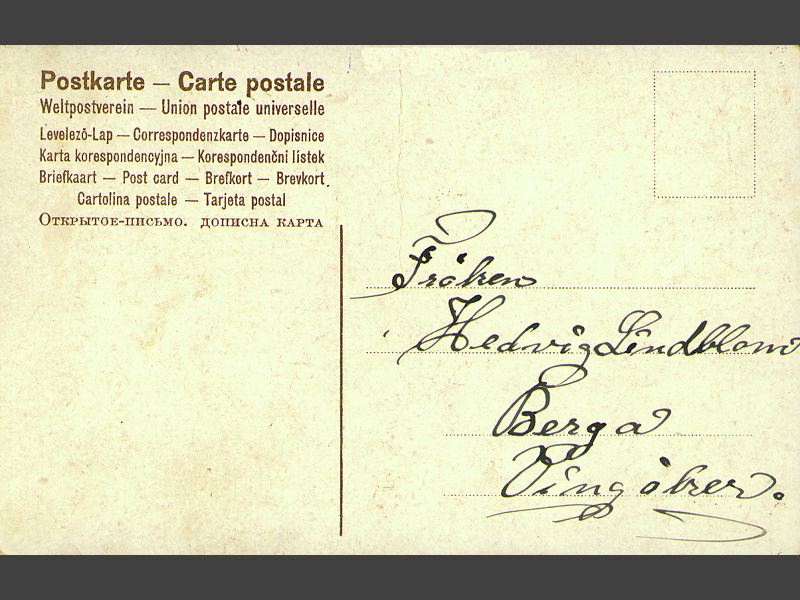 Postkarte — Carte postale
Weltpostverein — Union postale universelle
Levelező-Lap — Correspondenzkarte — Dopisnice
Karta korespondencyjna — Korespondenční lístek
Briefkaart — Post card — Brefkort — Brevkort.
Cartolina postale — Tarjeta postal
Открытое-письмо. дописна карта
Fröken
Hedvig Lindblom
Berga
Vingåker.